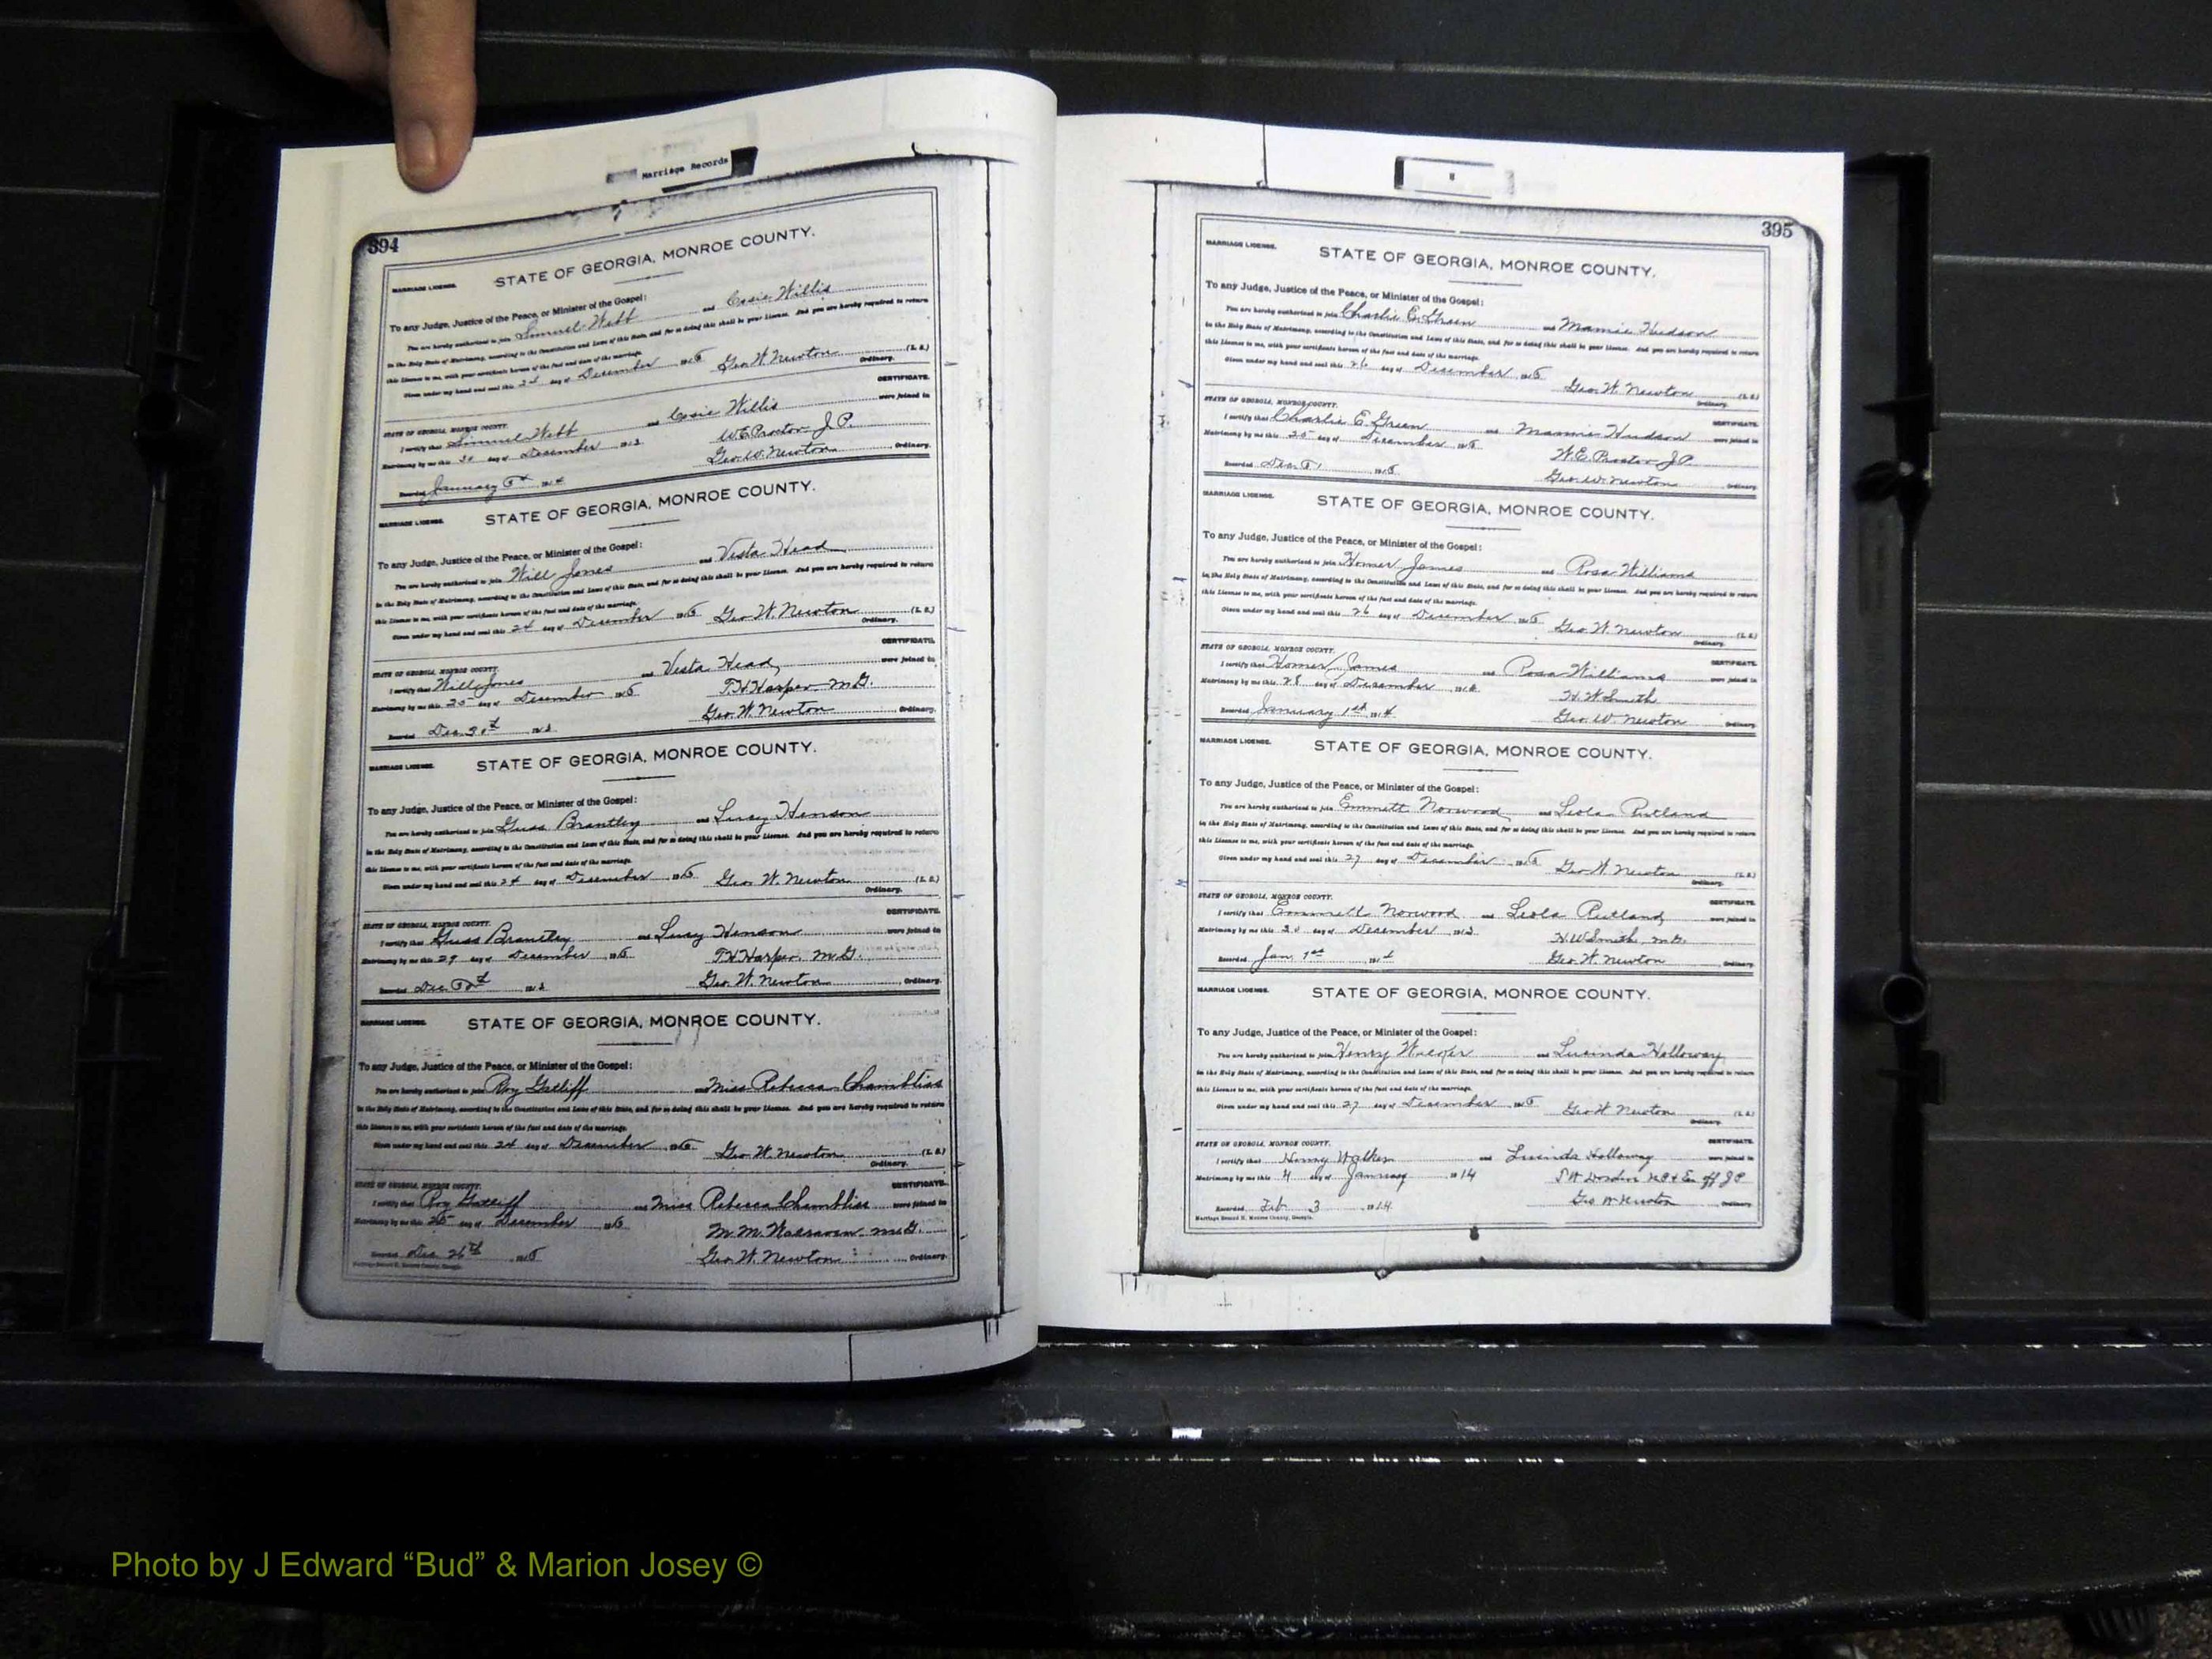 Marriage Records
394
MARRIAGE LICENSE.
STATE OF GEORGIA, MONROE COUNTY.
To any Judge, Justice of the Peace, or Minister of the Gospel:
You are hereby authorized to join Simuel Webb and Essie Willis
in the Holy State of Matrimony, according to the Constitution and Laws of this State, and for so doing this shall be your License. And you are hereby required to return
this License to me, with your certificate hereon of the fact and date of the marriage.
Given under my hand and seal this 24 day of December 191 Geo. W. Newton (L. S.)
Ordinary.
STATE OF GEORGIA, MONROE COUNTY. CERTIFICATE.
I certify that Simuel Webb and Essie Willis were joined in
Matrimony by me this 30 day of December 1913 W.E. Proctor J.P.
Recorded January 1914 Geo. W. Newton Ordinary.
MARRIAGE LICENSE.
STATE OF GEORGIA, MONROE COUNTY.
To any Judge, Justice of the Peace, or Minister of the Gospel:
You are hereby authorized to join Will Jones and Vesta Head
in the Holy State of Matrimony, according to the Constitution and Laws of this State, and for so doing this shall be your License. And you are hereby required to return
this License to me, with your certificate hereon of the fact and date of the marriage.
Given under my hand and seal this 24 day of December 1913 Geo. W. Newton (L. S.)
Ordinary.
STATE OF GEORGIA, MONROE COUNTY. CERTIFICATE.
I certify that Will Jones and Vesta Head were joined in
Matrimony by me this 25 day of December 1913 T.H. Harper M.G.
Recorded Dec. 30th 1913 Geo. W. Newton Ordinary.
MARRIAGE LICENSE.
STATE OF GEORGIA, MONROE COUNTY.
To any Judge, Justice of the Peace, or Minister of the Gospel:
You are hereby authorized to join Guss Brantley and Lucy Henson
in the Holy State of Matrimony, according to the Constitution and Laws of this State, and for so doing this shall be your License. And you are hereby required to return
this License to me, with your certificate hereon of the fact and date of the marriage.
Given under my hand and seal this 24 day of December 1913 Geo. W. Newton (L. S.)
Ordinary.
STATE OF GEORGIA, MONROE COUNTY. CERTIFICATE.
I certify that Guss Brantley and Lucy Henson were joined in
Matrimony by me this 29 day of December 1913 T.H. Harper M.G.
Recorded Dec. 30th 1913 Geo. W. Newton Ordinary.
MARRIAGE LICENSE.
STATE OF GEORGIA, MONROE COUNTY.
To any Judge, Justice of the Peace, or Minister of the Gospel:
You are hereby authorized to join Roy Gatliff and Miss Rebecca Chambliss
in the Holy State of Matrimony, according to the Constitution and Laws of this State, and for so doing this shall be your License. And you are hereby required to return
this License to me, with your certificate hereon of the fact and date of the marriage.
Given under my hand and seal this 24 day of December 1913 Geo. W. Newton (L. S.)
Ordinary.
STATE OF GEORGIA, MONROE COUNTY. CERTIFICATE.
I certify that Roy Gatliff and Miss Rebecca Chambliss were joined in
Matrimony by me this 25 day of December 1913 M.M. Walraven M.G.
Recorded Dec. 26th 1913 Geo. W. Newton Ordinary.
Marriage Record H, Monroe County, Georgia.
395
MARRIAGE LICENSE.
STATE OF GEORGIA, MONROE COUNTY.
To any Judge, Justice of the Peace, or Minister of the Gospel:
You are hereby authorized to join Charlie E. Green and Mamie Hudson
in the Holy State of Matrimony, according to the Constitution and Laws of this State, and for so doing this shall be your License. And you are hereby required to return
this License to me, with your certificate hereon of the fact and date of the marriage.
Given under my hand and seal this 26 day of December 1913 Geo. W. Newton (L. S.)
Ordinary.
STATE OF GEORGIA, MONROE COUNTY. CERTIFICATE.
I certify that Charlie E. Green and Mammie Hudson were joined in
Matrimony by me this day of December 1913 W.E. Proctor J.P.
Recorded Dec. 1913 Geo. W. Newton Ordinary.
MARRIAGE LICENSE.
STATE OF GEORGIA, MONROE COUNTY.
To any Judge, Justice of the Peace, or Minister of the Gospel:
You are hereby authorized to join Homer James and Rosa Williams
in the Holy State of Matrimony, according to the Constitution and Laws of this State, and for so doing this shall be your License. And you are hereby required to return
this License to me, with your certificate hereon of the fact and date of the marriage.
Given under my hand and seal this 26 day of December 1913 Geo. W. Newton (L. S.)
Ordinary.
STATE OF GEORGIA, MONROE COUNTY. CERTIFICATE.
I certify that Homer James and Rosa Williams were joined in
Matrimony by me this 28 day of December 1913 H.W. Smith
Recorded January 1st 1914 Geo. W. Newton Ordinary.
MARRIAGE LICENSE.
STATE OF GEORGIA, MONROE COUNTY.
To any Judge, Justice of the Peace, or Minister of the Gospel:
You are hereby authorized to join Emmett Norwood and Leola Rutland
in the Holy State of Matrimony, according to the Constitution and Laws of this State, and for so doing this shall be your License. And you are hereby required to return
this License to me, with your certificate hereon of the fact and date of the marriage.
Given under my hand and seal this 27 day of December 1913 Geo. W. Newton (L. S.)
Ordinary.
STATE OF GEORGIA, MONROE COUNTY. CERTIFICATE.
I certify that Emmett Norwood and Leola Rutland were joined in
Matrimony by me this day of December 1913 H.W. Smith, M.G.
Recorded Jan. 1st 1914 Geo. W. Newton Ordinary.
MARRIAGE LICENSE.
STATE OF GEORGIA, MONROE COUNTY.
To any Judge, Justice of the Peace, or Minister of the Gospel:
You are hereby authorized to join Henry Walker and Lucinda Holloway
in the Holy State of Matrimony, according to the Constitution and Laws of this State, and for so doing this shall be your License. And you are hereby required to return
this License to me, with your certificate hereon of the fact and date of the marriage.
Given under my hand and seal this 27 day of December 1913 Geo W Newton (L. S.)
Ordinary.
STATE OF GEORGIA, MONROE COUNTY. CERTIFICATE.
I certify that Henry Walker and Lucinda Holloway were joined in
Matrimony by me this 4 day of January 1914 NP & Ex off JP
Recorded Feb 3 1914 Geo W Newton Ordinary.
Marriage Record H, Monroe County, Georgia.
Photo by J Edward “Bud” & Marion Josey ©